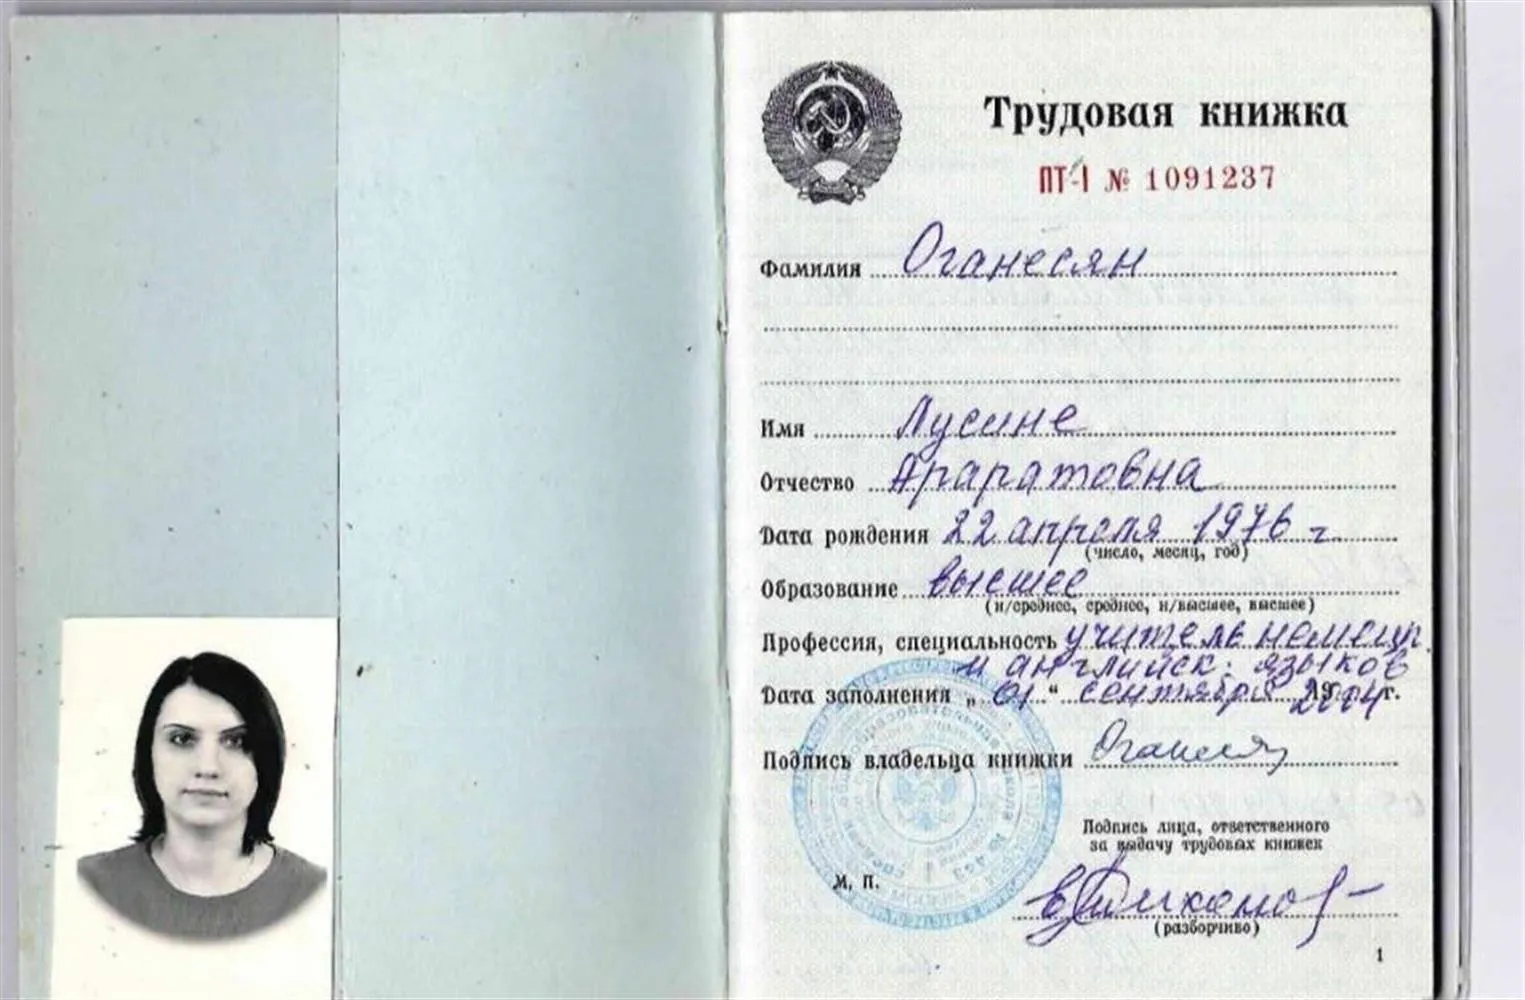 Трудовая книжка
ПТ-I № 1091237
Фамилия Оганесян
Имя Лусине
Отчество Араратовна
Дата рождения 22 апреля 1976 г.
(число, месяц, год)
Образование высшее
(н/среднее, среднее, н/высшее, высшее)
Профессия, специальность учитель немецк.
и английск. языков
Дата заполнения „01“ сентября 2004 г.
Подпись владельца книжки Оганесян
Подпись лица, ответственного
за выдачу трудовых книжек
М. П.
(разборчиво)
1